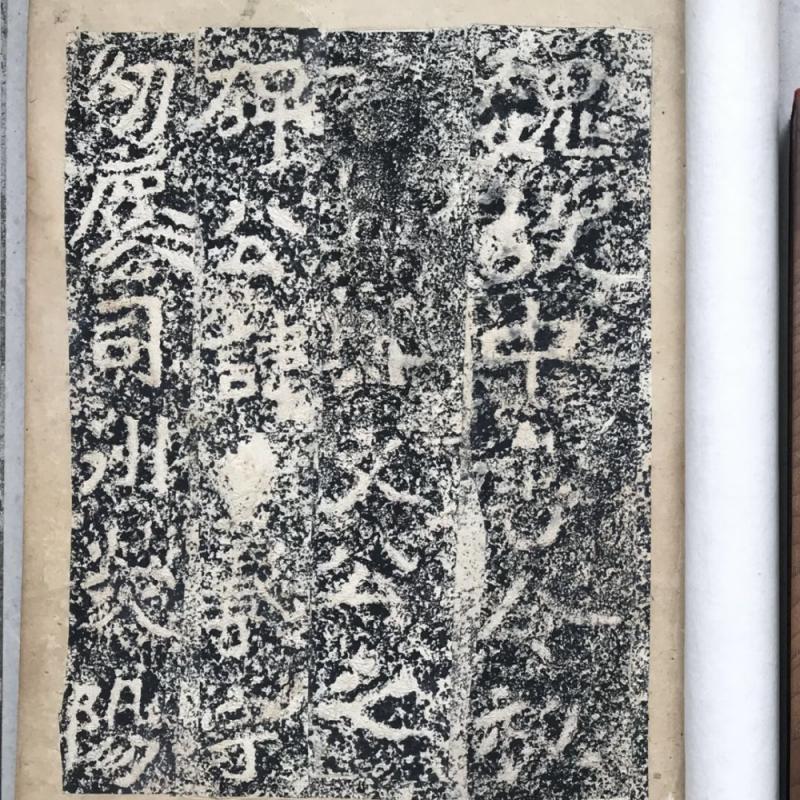 魏故中書令秘
文公之
碑公諱羲字
幼司州熒陽